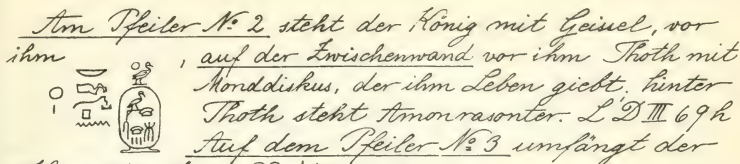 Am Pfeiler № 2 steht der König mit Geissel, vor
ihm , auf der Zwischenwand vor ihm Thoth mit
Monddiskus, der ihm Leben giebt, hinter
Thoth steht Amonrasonter. L D III 69 h
Auf dem Pfeiler № 3 umfängt der